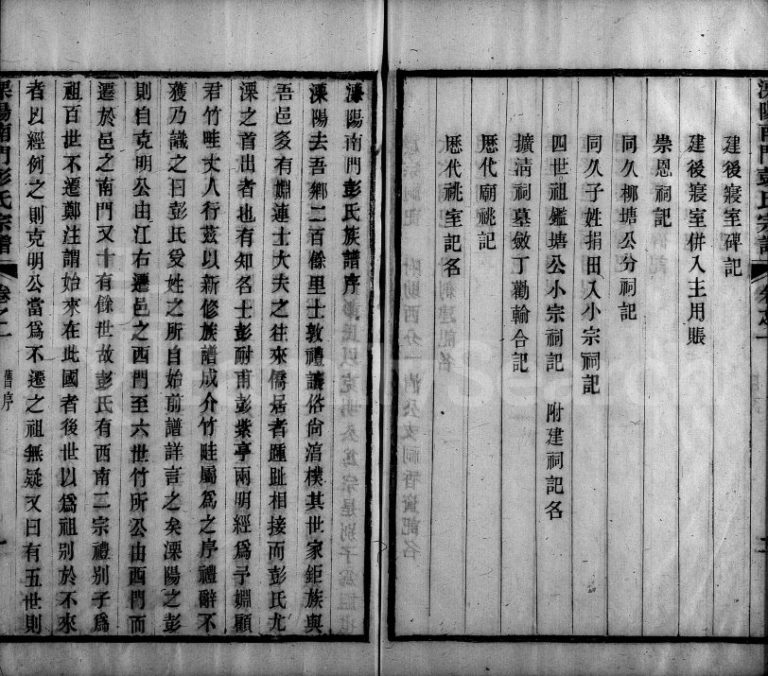 溧陽南門彭氏宗譜 卷之一
建後寢室碑記
建後寢室併入主用賬
崇恩祠記
同久柳塘公分祠記
同久子姓捐田入小宗祠記
四世祖鑑塘公小宗祠記 附建祠記名
擴清祠墓斂丁勸輸合記
歷代廟祧記
歷代祧室記名
溧陽南門彭氏族譜序
溧陽去吾鄉二百餘里士敦禮讓俗尙湻樸其世家鉅族與
吾邑多有姻連士大夫之往來僑居者踵趾相接而彭氏尤
溧之首出者也有知名士彭耐甫彭紫亭兩明經爲予姻顯
君竹畦丈人行茲以新修族譜成介竹畦屬爲之序禮辭不
獲乃識之曰彭氏受姓之所自始前譜詳言之矣溧陽之彭
則自克明公由江右遷邑之西門至六世竹所公由西門而
遷於邑之南門又十有餘世故彭氏有西南二宗禮別子爲
祖百世不遷鄭注謂始來在此國者後世以爲祖別於不來
者以經例之則克明公當爲不遷之祖無疑又曰有五世則
溧陽南門彭氏宗譜 卷之一 舊序